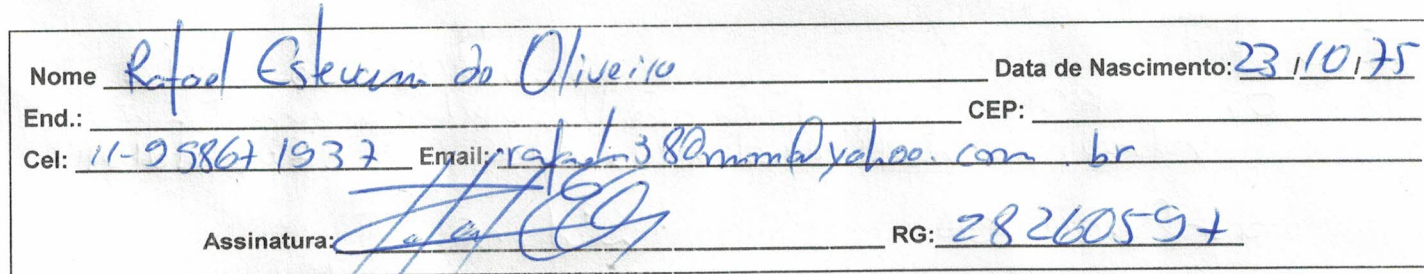 Nome Rafael Estevam de Oliveira Data de Nascimento: 23/10/75
End.: CEP:
Cel: 11-998671937 Email: @yahoo.com.br
Assinatura: RG: 282605597